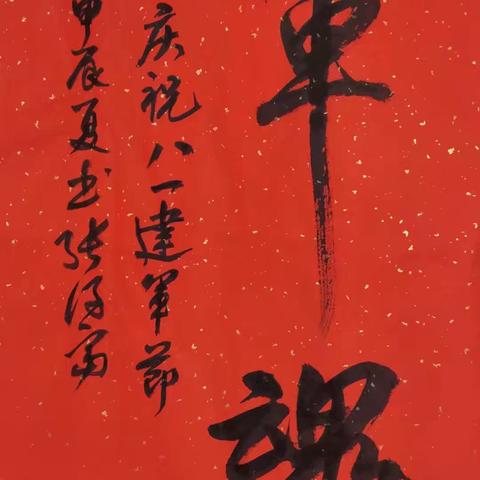 军魂
庆祝八一建军节
甲辰夏书张得富